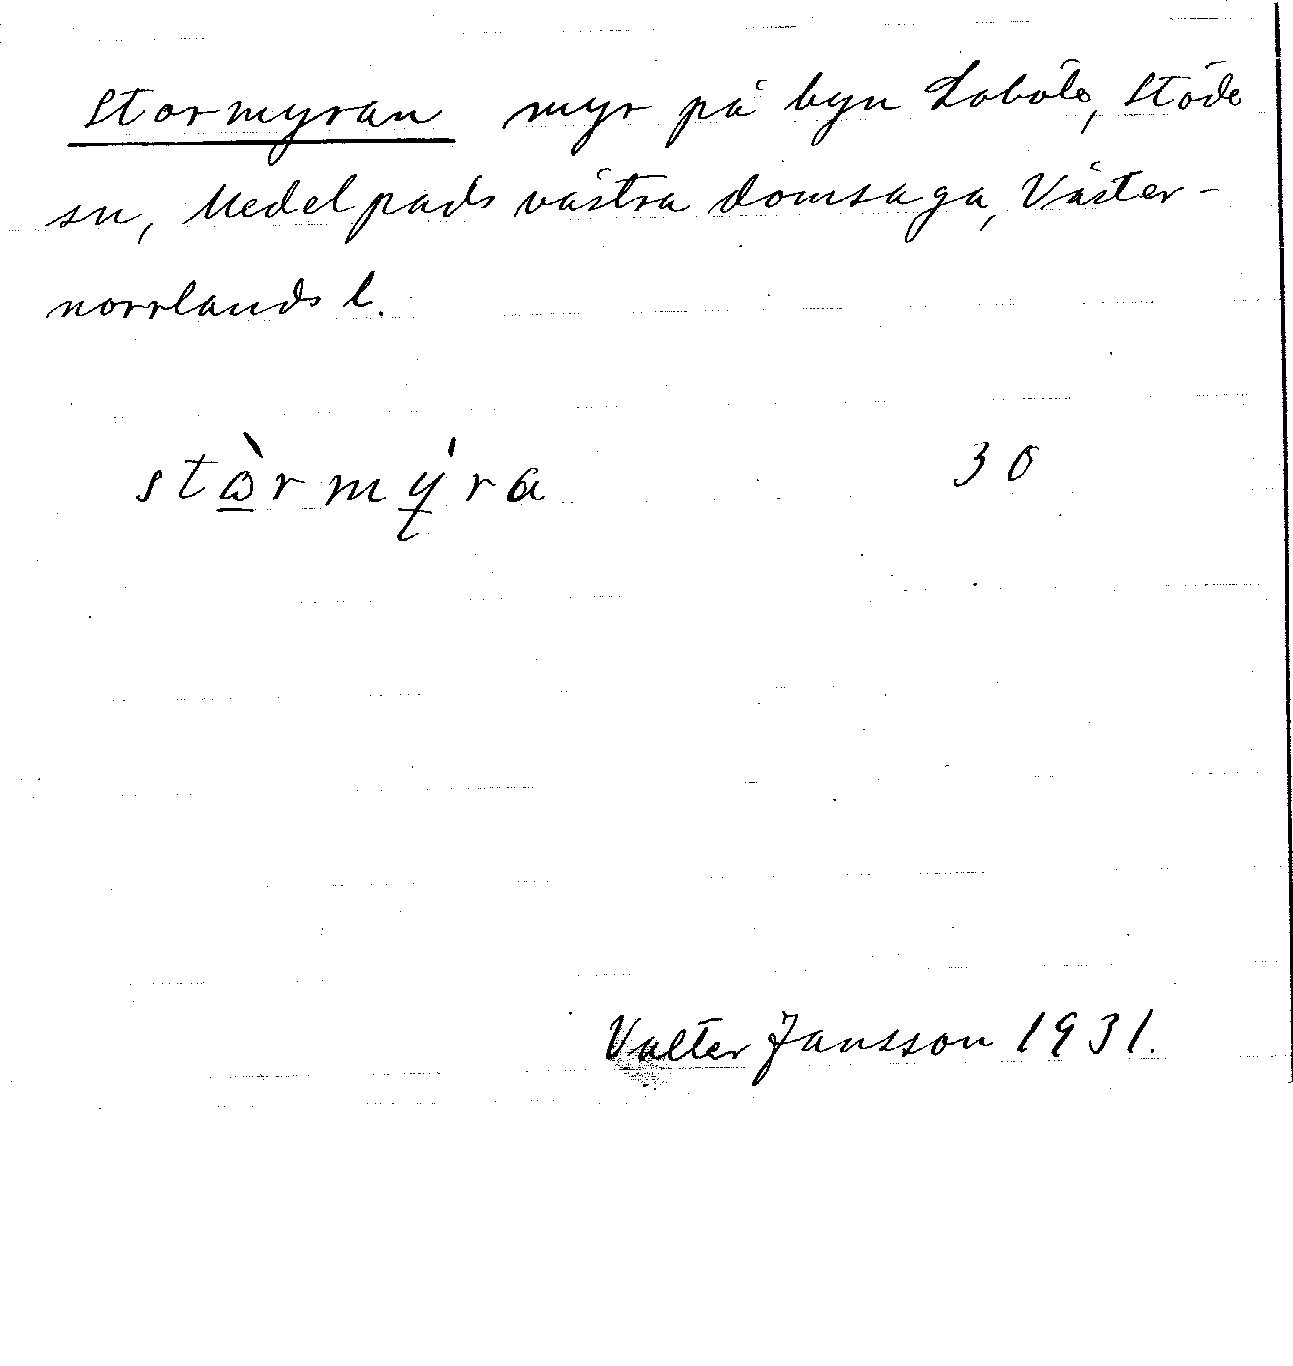 Stormyran myr på byn Loböle, Stöde
sn, Medelpads västra domsaga, Väster-
norrlands l.
stɷ̀rmýra 30
Valter Jansson 1931.